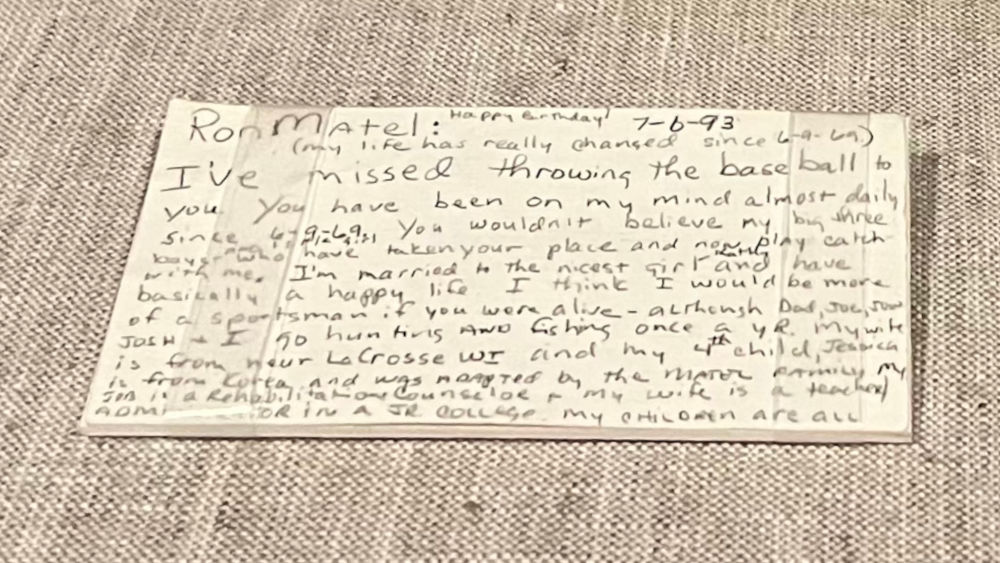 Ron Matel: Happy Birthday! 7-6-93
(my life has really changed since 6-9-69.)
I've missed throwing the baseball to
you You have been on my mind almost daily
since 6-9-69. You wouldn't believe my big three
boys who have taken your place and now play catch
with me. I'm married to the nicest girl and have
basically a happy life I think I would be more
of a sportsman if you were alive - although Dad, Joe, Jon
JOSH + I go hunting AND fishing once a yr. My wife
is from near LaCrosse WI and my 4th child, Jessica
is from Korea and was adopted by the MATEL FAMILY My
JOB is a Rehabilitation Counselor + my wife is a teacher/
ADMI OR IN A JR COLLEGE. MY CHILDREN ARE ALL